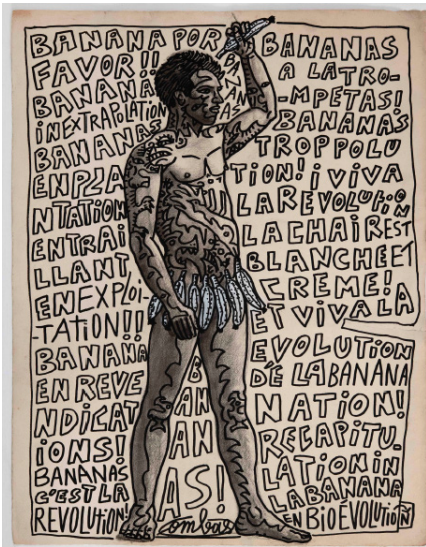 BANANA POR
FAVOR!!
BANANA
iNEXTRAPOLATION
BANANAS
ENPLA
NTATION
ENTRAi
LLANT
ENEXPLOi-
-TATION!!
BANANA
EN REVE
NDICAT
iONS!
BANANAS
C'EST LA
REVOLUTION!
B
AN
AN
AS!
Combas
BANANAS
A LATRO-
-MPETAS!
BANANAS
TROPPOLU
TION! ¡ VIVA
LAREVOLUTiON
LA CHAIR EST
BLANCHE ET
CREME!
ET VIVA LA
EVOLUTiON
DE LABANANA
NATiON!
RECAPITU-
LATION IN
LABANANA
EN BiOÉVOLUTiON